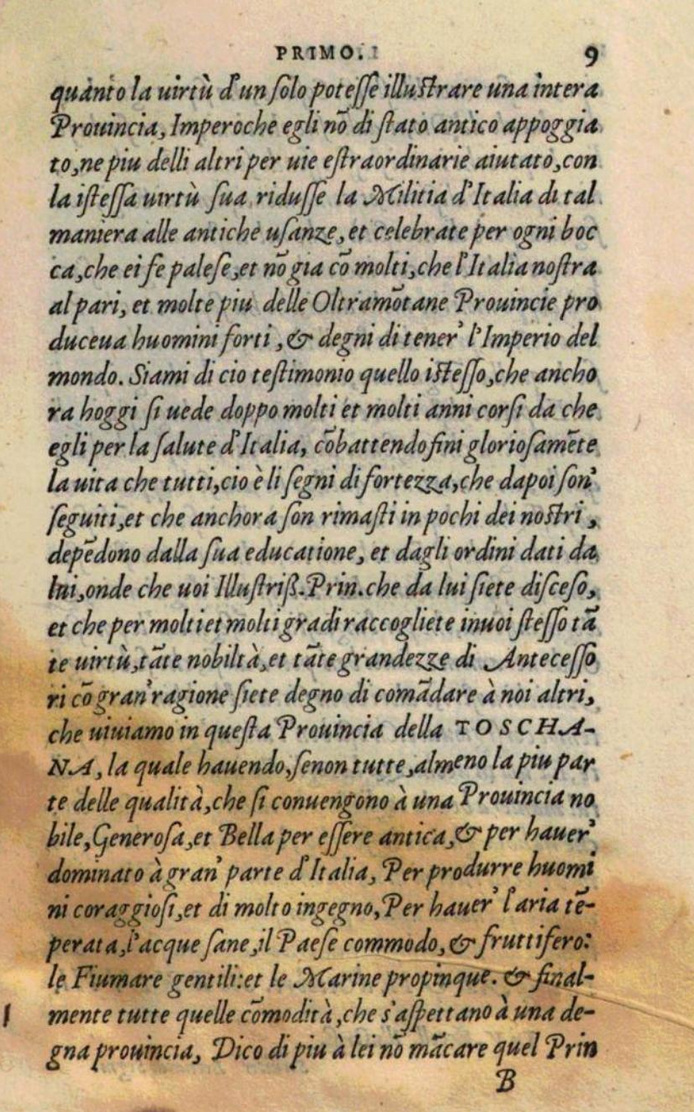 PRIMO. 9
quanto la uirtù d'un ſolo poteſſe illuſtrare una intera
Prouincia, Imperoche egli nõ di ſtato antico appoggia
to, ne piu delli altri per uie eſtraordinarie aiutato, con
la iſteſſa uirtù ſua riduſſe la Militia d'Italia di tal
maniera alle antiche uſanze, et celebrate per ogni boc
ca, che ei fe paleſe, et nõ gia cõ molti, che l'Italia noſtra
al pari, et molte piu delle Oltramõtane Prouincie pro
duceua huomini forti, & degni di tener' l'Imperio del
mondo. Siami di cio teſtimonio quello iſteſſo, che ancho
ra hoggi ſi uede doppo molti et molti anni corſi da che
egli per la ſalute d'Italia, cõbattendo fini glorioſamẽte
la uita che tutti, cio è li ſegni di fortezza, che dapoi ſon'
ſeguiti, et che anchora ſon rimaſti in pochi dei noſtri,
depẽdono dalla ſua educatione, et dagli ordini dati da
lui, onde che uoi Illuſtriß. Prin. che da lui ſiete diſceſo,
et che per molti et molti gradi raccogliete in uoi ſteſſo tã
te uirtù, tãte nobiltà, et tãte grandezze di Anteceſſo
ri cõ gran' ragione ſiete degno di comãdare à noi altri,
che uiuiamo in queſta Prouincia della TOSCHA-
NA, la quale hauendo, ſenon tutte, almeno la piu par
te delle qualità, che ſi conuengono à una Prouincia no
bile, Generoſa, et Bella per eſſere antica, & per hauer'
dominato à gran' parte d'Italia, Per produrre huomi
ni coraggioſi, et di molto ingegno, Per hauer' l'aria tẽ-
perata, l'acque ſane, il Paeſe commodo, & fruttifero:
le Fiumare gentili: et le Marine propinque. & final-
mente tutte quelle cõmodità, che s'aſpettano à una de-
gna prouincia, Dico di piu à lei nõ mãcare quel Prin
B